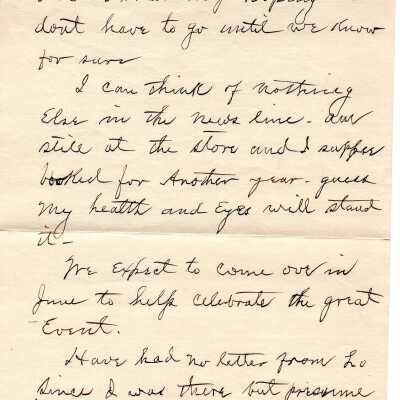 dont have to go until we know
for sure
I can think of nothing
Else in the news line - am
still at the store and I suppse
booked for Another year - guess
My health and Eyes will stand
it -
We Expect to come over in
June to help celebrate the great
Event.
Have had no letter from Lo
since I was there but presume